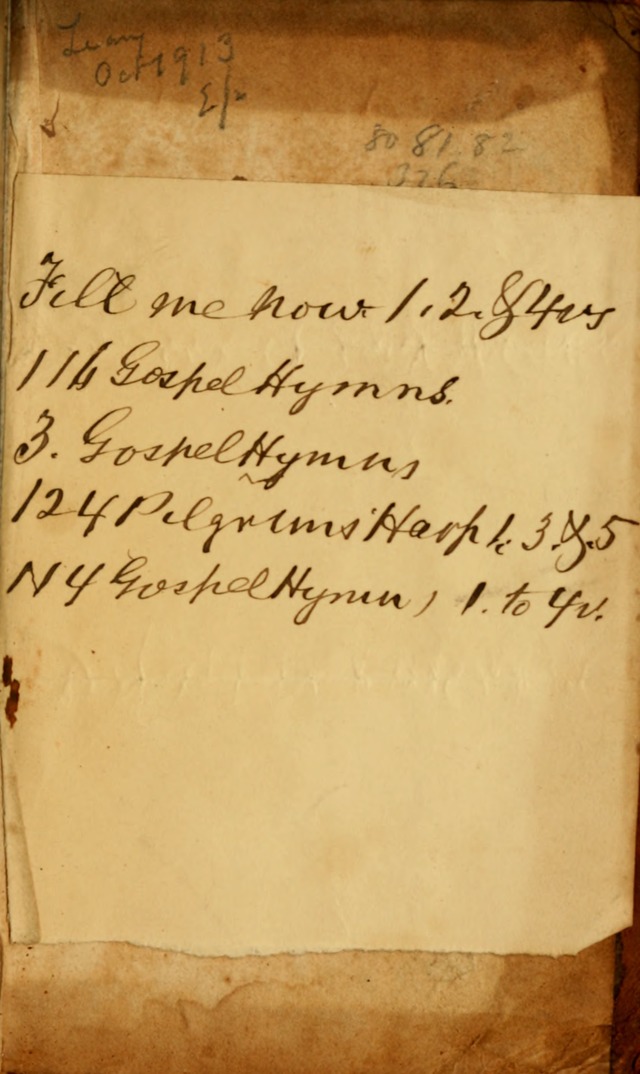 Oct 1913
80 81. 82
326
Fill me now. 1. 2. & 4 vs
116 Gospel Hymns.
3. Gospel Hymns
124 Pilgrims' Harp 1. 3. & 5
N 4 Gospel Hymns 1. to 4 v.